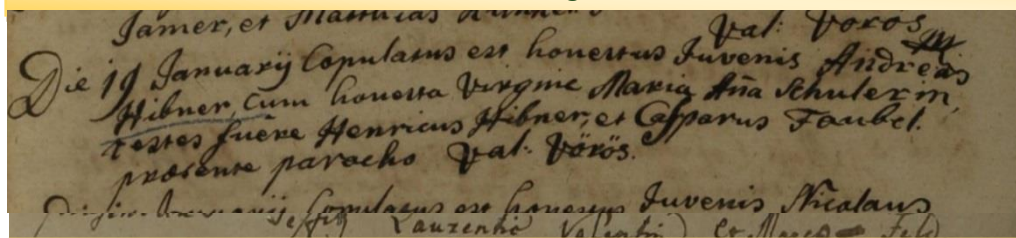 Jamer, et Matthias
Val: Vörös
Die 19 Januarij Copulatus est honestus Juvenis Andreas
Hibner, cum honesta Virgine Maria Aña Schulerin,
testes fuêre Henricus Hibner, et Casparus Faubel.
præsente parocho Val: Vörös.
Copulatus est honestus Juvenis Nicolaus
Laurentii Valentin et